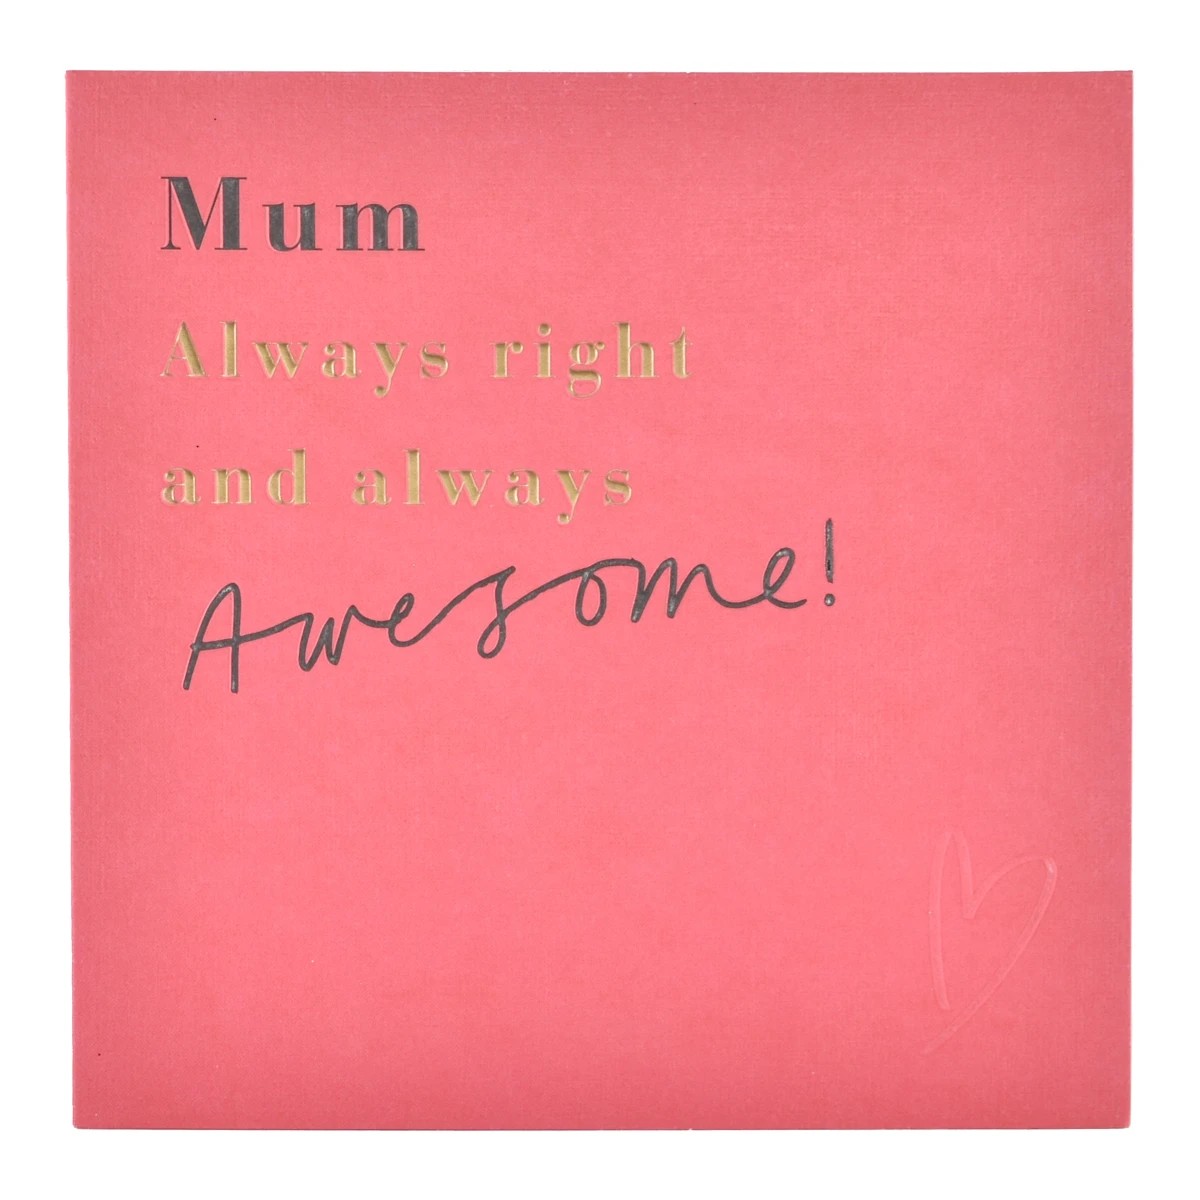 Mum
Always right
and always
Awesome!